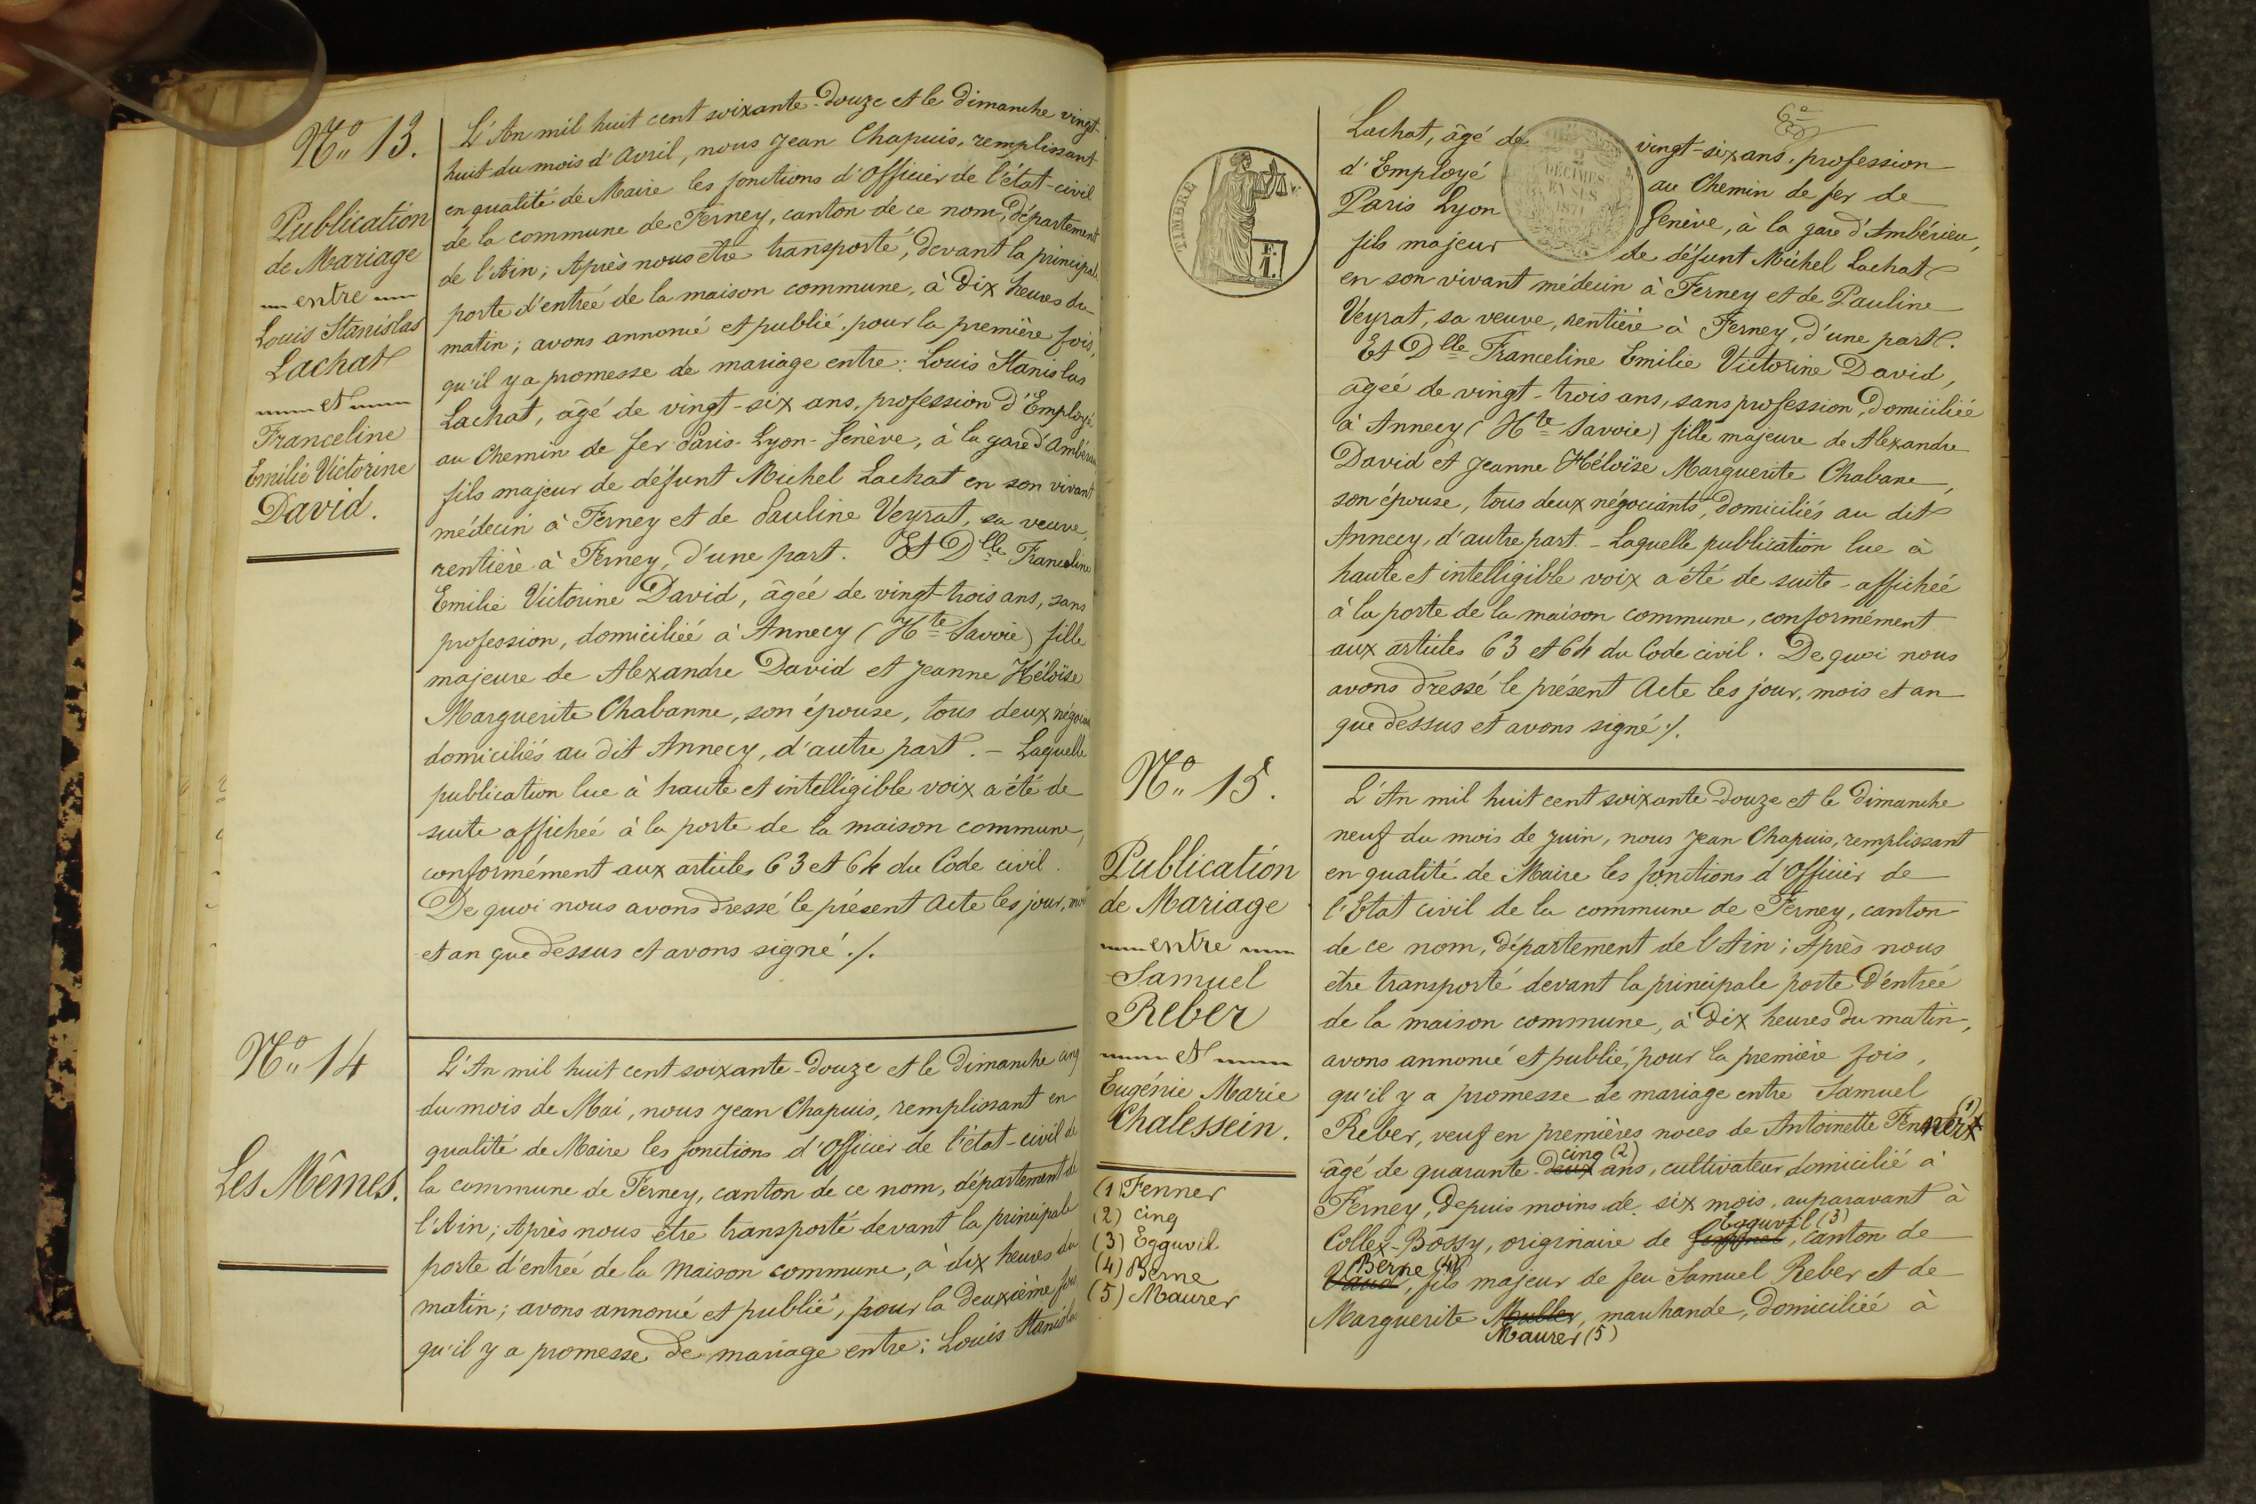 Nº 13.
Publication
de Mariage
entre
Louis Stanislas
Lachat
et
Franceline
Emilie Victorine
David.
L'An mil huit cent soixante-douze et le dimanche vingt-
huit du mois d'Avril, nous Jean Chapuis, remplissant
en qualité de Maire les fonctions d'Officier de l'état-civil
de la commune de Ferney, canton de ce nom, département
de l'Ain; Après nous etre transporté, devant la principale
porte d'entrée de la maison commune, à dix heures du
matin; avons annoncé et publié, pour la première fois,
qu'il y a promesse de mariage entre: Louis Stanislas
Lachat, âgé de vingt-six ans, profession d'Employé
au Chemin de fer Paris-Lyon-Genève, à la gare d'Ambérieu
fils majeur de défunt Michel Lachat en son vivant
médecin à Ferney et de Pauline Veyrat, sa veuve,
rentière à Ferney, d'une part. Et Dlle Franceline
Emilie Victorine David, âgée de vingt-trois ans, sans
profession, domiciliée à Annecy (Hte Savoie) fille
majeure de Alexandre David et Jeanne Héloïse
Marguerite Chabanne, son épouse, tous deux
domiciliés au dit Annecy, d'autre part. - Laquelle
publication lue à haute et intelligible voix a été de
suite affichée à la porte de la maison commune,
conformément aux articles 63 et 64 du Code civil.
De quoi nous avons dressé le présent Acte les jour,
et an que dessus et avons signé ./.
Nº 14
Les Mêmes.
L'An mil huit cent soixante-douze et le dimanche cinq
du mois de Mai, nous Jean Chapuis, remplissant en
qualité de Maire les fonctions d'Officier de l'état-civil de
la commune de Ferney, canton de ce nom, département de
l'Ain; Après nous etre transporté devant la principale
porte d'entrée de la maison commune, à dix heures du
matin; avons annoncé et publié, pour la deuxième fois
qu'il y a promesse de mariage entre: Louis Stanislas
TIMBRE
F.
1.
2
DÉCIMES
EN SUS
1871
Lachat, âgé de vingt-six ans, profession
d'Employé au Chemin de fer de
Paris Lyon Genève, à la gare d'Ambérieu,
fils majeur de défunt Michel Lachat
en son vivant médecin à Ferney et de Pauline
Veyrat, sa veuve, rentière à Ferney, d'une part.
Et Dlle Franceline Emilie Victorine David,
âgée de vingt-trois ans, sans profession, domiciliée
à Annecy (Hte Savoie) fille majeure de Alexandre
David et Jeanne Héloïse Marguerite Chabane,
son épouse, tous deux négociants, domiciliés au dit
Annecy, d'autre part. - Laquelle publication lue à
haute et intelligible voix a été de suite affichée
à la porte de la maison commune, conformément
aux articles 63 et 64 du Code civil. De quoi nous
avons dressé le présent Acte les jour, mois et an
que dessus et avons signé ./.
Nº 15.
Publication
de Mariage
entre
Samuel
Reber
et
Eugénie Marie
Chalessein.
(1) Fenner
(2) cinq
(3) Egguvil
(4) Berne
(5) Maurer
L'An mil huit cent soixante douze et le dimanche
neuf du mois de Juin, nous Jean Chapuis, remplissant
en qualité de Maire les fonctions d'Officier de
l'Etat civil de la commune de Ferney, canton
de ce nom, département de l'Ain; Après nous
etre transporté devant la principale porte d'entrée
de la maison commune, à dix heures du matin,
avons annoncé et publié, pour la première fois,
qu'il y a promesse de mariage entre Samuel
Reber, veuf en premières noces de Antoinette Fenner (1)
âgé de quarante-deux cinq (2) ans, cultivateur domicilié à
Ferney, depuis moins de six mois, auparavant à
Collex-Bossy, originaire de Egguvil (3), canton de
Vaud Berne (4), fils majeur de feu Samuel Reber et de
Marguerite Muller, marchande, domiciliée à
Maurer (5)